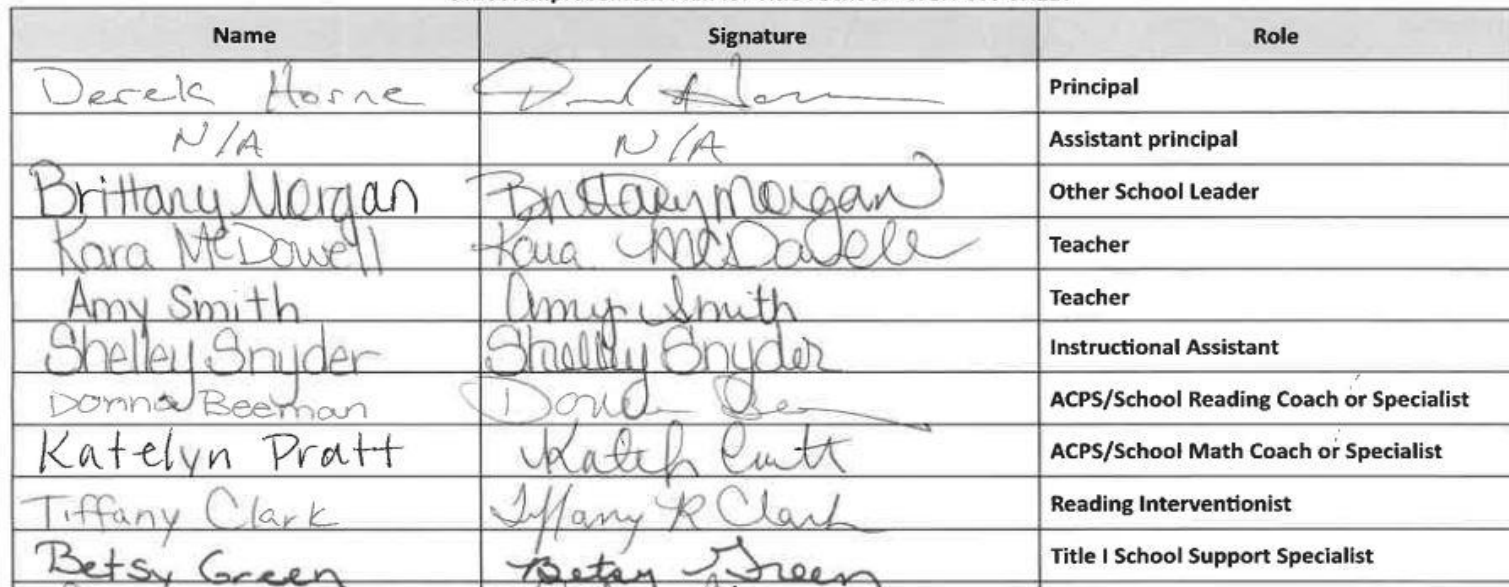 Name Signature Role
Derek Horne Principal
N/A N/A Assistant principal
Brittany Morgan Brittany Morgan Other School Leader
Kara McDowell Kara McDowell Teacher
Amy Smith Amy Smith Teacher
Shelley Snyder Shelley Snyder Instructional Assistant
Donna Beeman ACPS/School Reading Coach or Specialist
Katelyn Pratt Katelyn Pratt ACPS/School Math Coach or Specialist
Tiffany Clark Tiffany R Clark Reading Interventionist
Betsy Green Betsy Green Title I School Support Specialist